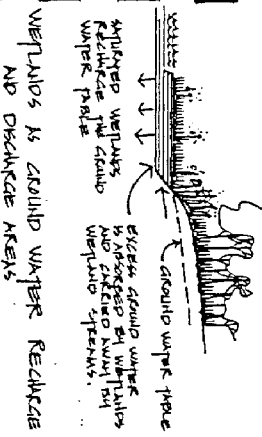 GROUND WATER TABLE
EXCESS GROUND WATER
IS ABSORBED BY WETLANDS
AND CARRIED AWAY BY
WETLAND STREAMS.
SATURATED WETLANDS
RECHARGE THE GROUND
WATER TABLE
WETLANDS AS GROUND WATER RECHARGE
AND DISCHARGE AREAS